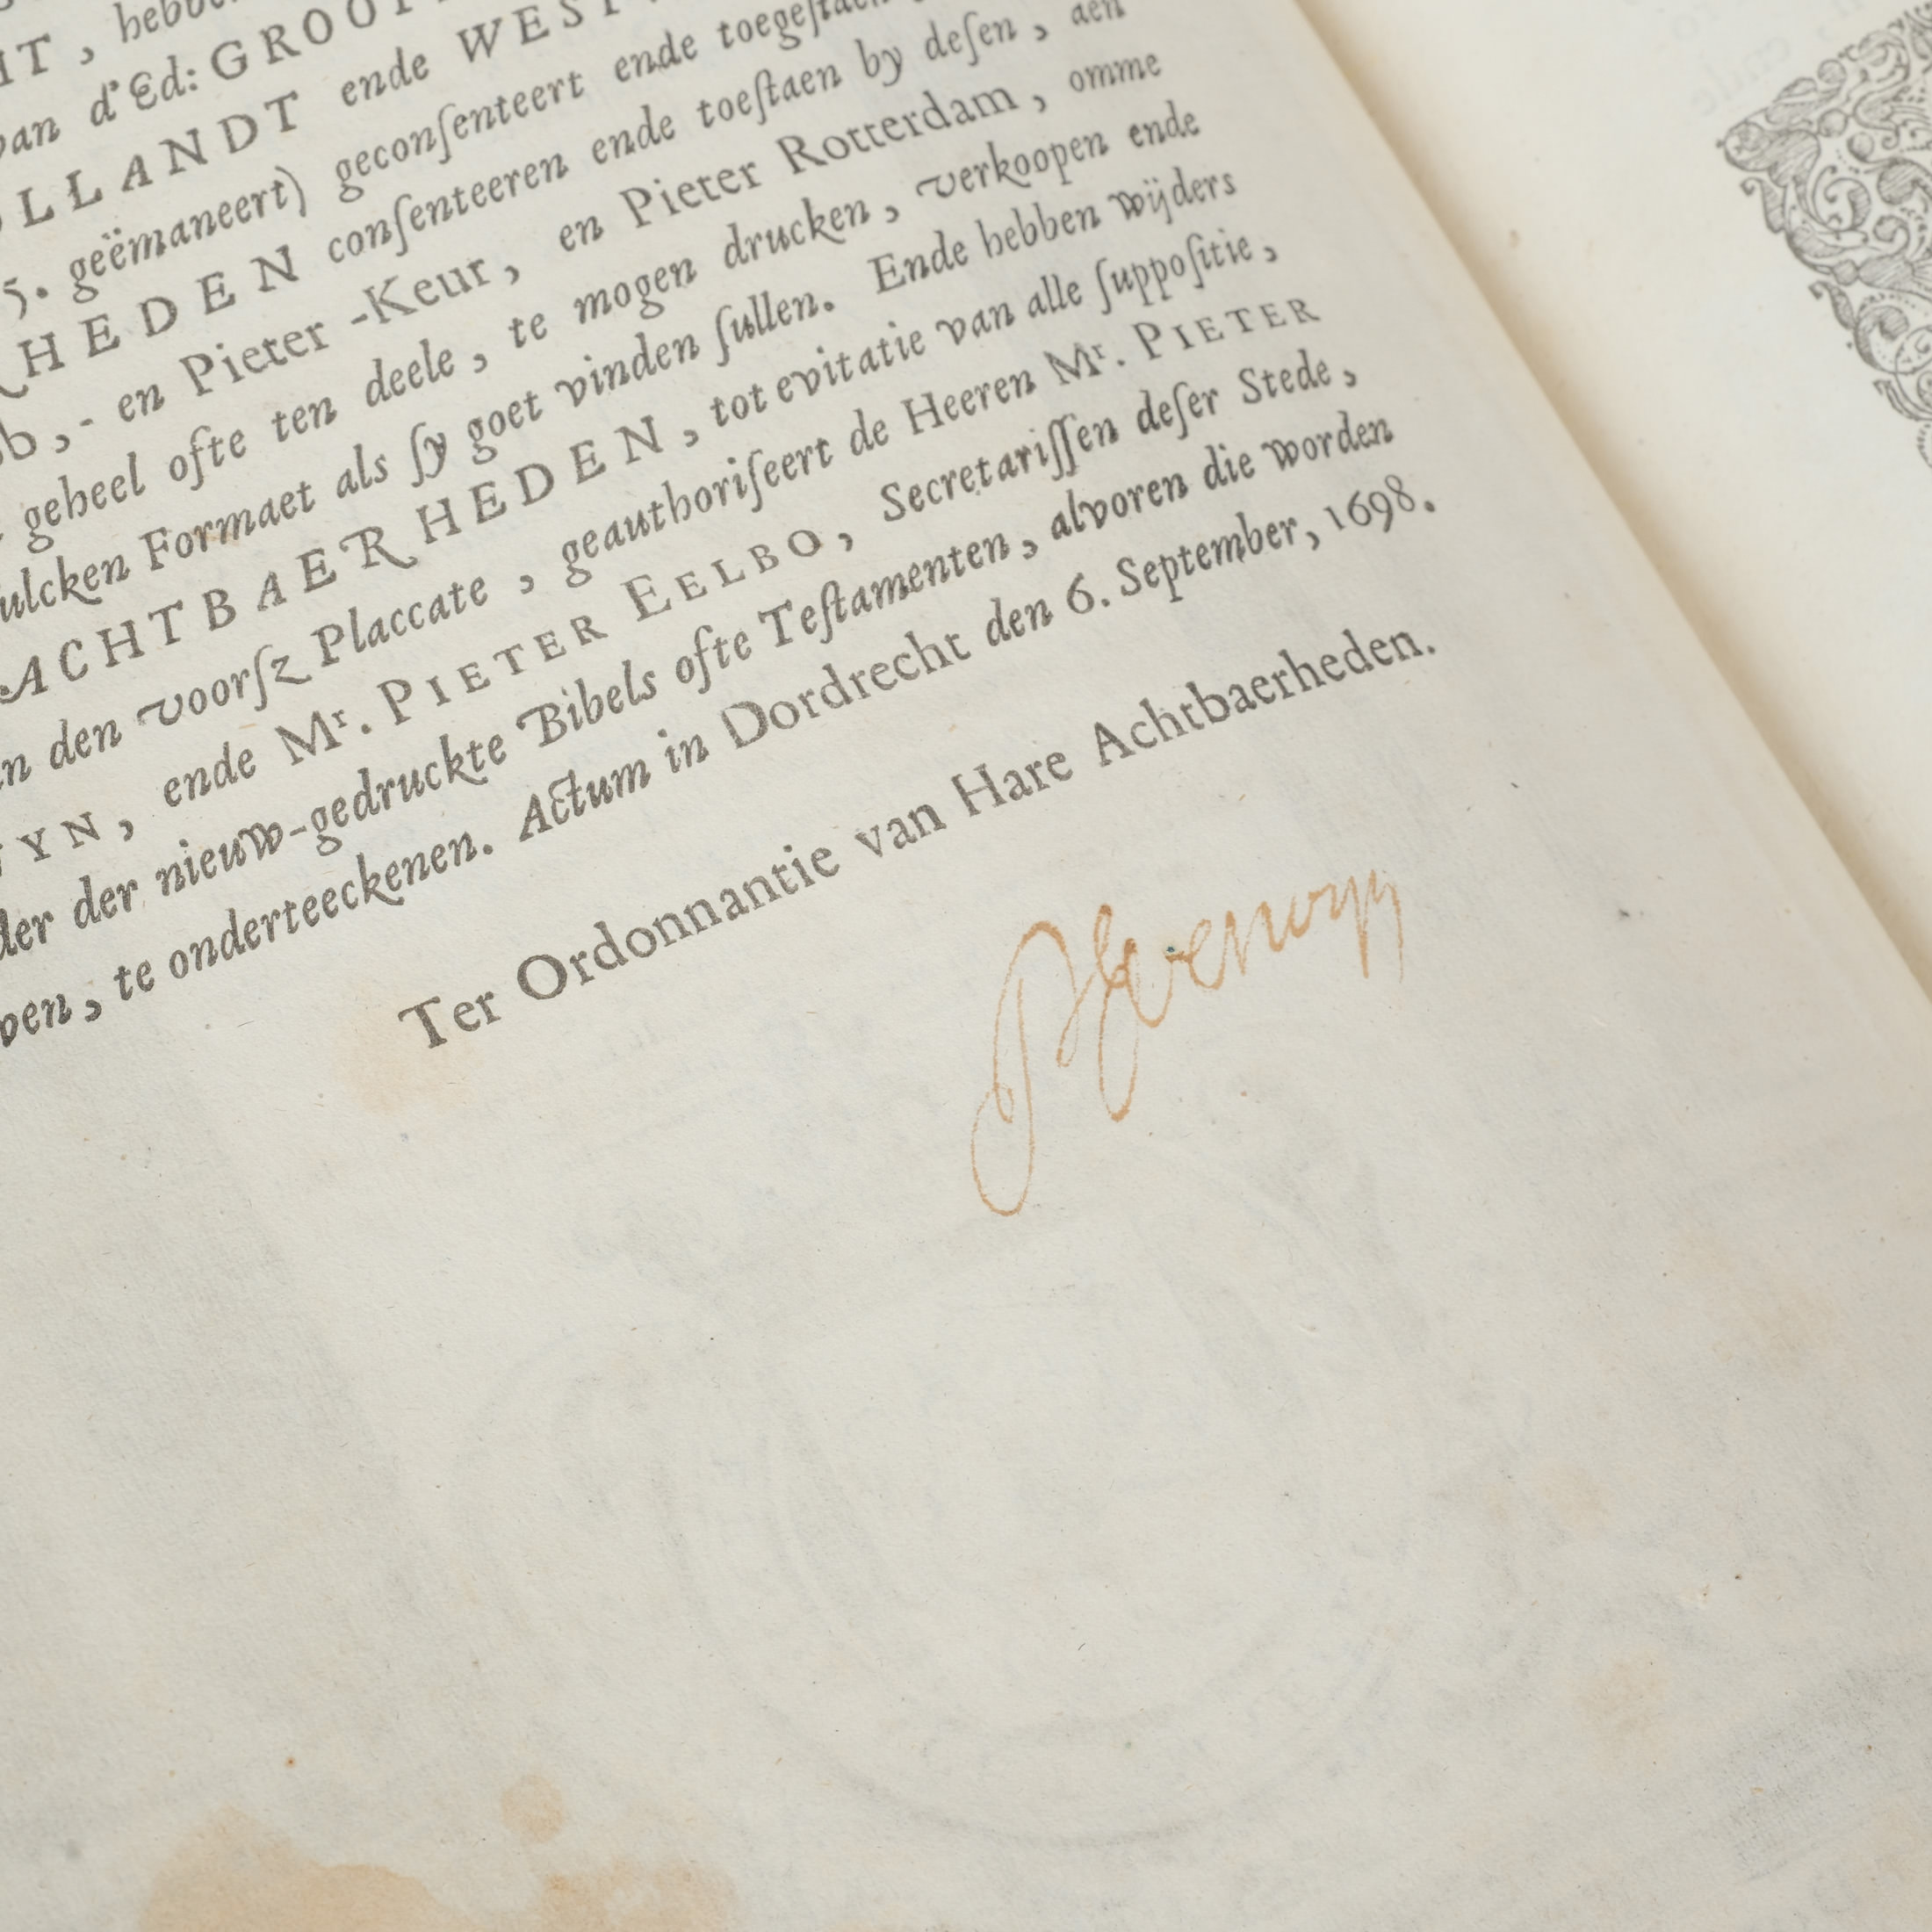 HT, hebben
van d'Ed: GROOT
OLLANDT ende WEST
5. geëmaneert) geconſenteert ende toegeſtaen
RHEDEN conſenteeren ende toeſtaen by deſen, aen
b,- en Pieter -Keur, en Pieter Rotterdam, omme
geheel ofte ten deele, te mogen drucken, verkoopen ende
ulcken Formaet als ſy goet vinden ſullen. Ende hebben wijders
ACHTBAERHEDEN, tot evitatie van alle ſuppoſitie,
n den voorſz Placcate, geauthoriſeert de Heeren Mr. PIETER
YN, ende Mr. PIETER EELBO, Secretariſſen deſer Stede,
der der nieuw-gedruckte Bibels ofte Teſtamenten, alvoren die worden
ven, te onderteeckenen. Actum in Dordrecht den 6. September, 1698.
Ter Ordonnantie van Hare Achtbaerheden.